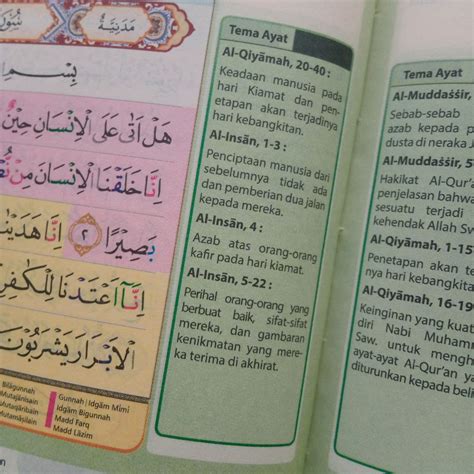 مَدَنِيَّةٌ
بِسْمِ
هَلْ اَتٰى عَلَى الْاِنْسَانِ حِيْنٌ
اِنَّا خَلَقْنَا الْاِنْسَانَ مِنْ
بَصِيْرًا ٢ اِنَّا هَدَيْنٰ
اِنَّآ اَعْتَدْنَا لِلْكٰفِرِ
الْاَبْرَارَ يَشْرَبُوْنَ
Bilāgunnah
Gunnah | Idgām Mīmī
Idgām Bigunnah
Madd Farq
Madd Lāzim
Tema Ayat
Al-Qiyāmah, 20-40 :
Keadaan manusia pada
hari Kiamat dan pen-
etapan akan terjadinya
hari kebangkitan.
Al-Insān, 1-3 :
Penciptaan manusia dari
sebelumnya tidak ada
dan pemberian dua jalan
kepada mereka.
Al-Insān, 4 :
Azab atas orang-orang
kafir pada hari kiamat.
Al-Insān, 5-22 :
Perihal orang-orang yang
berbuat baik, sifat-sifat
mereka, dan gambaran
kenikmatan yang mere-
ka terima di akhirat.
Tema Ayat
Al-Muddaṡṡir,
Sebab-sebab
azab kepada
dusta di neraka
Al-Muddaṡṡir, 5
Hakikat Al-Qur'a
penjelasan bahwa
sesuatu terjadi
kehendak Allah Sw
Al-Qiyāmah, 1-15
Penetapan akan t
nya hari kebangkita
Al-Qiyāmah, 16-19
Keinginan yang kuat
diri Nabi Muhamm
Saw. untuk mengh
ayat-ayat Al-Qur'an ya
diturunkan kepada beli